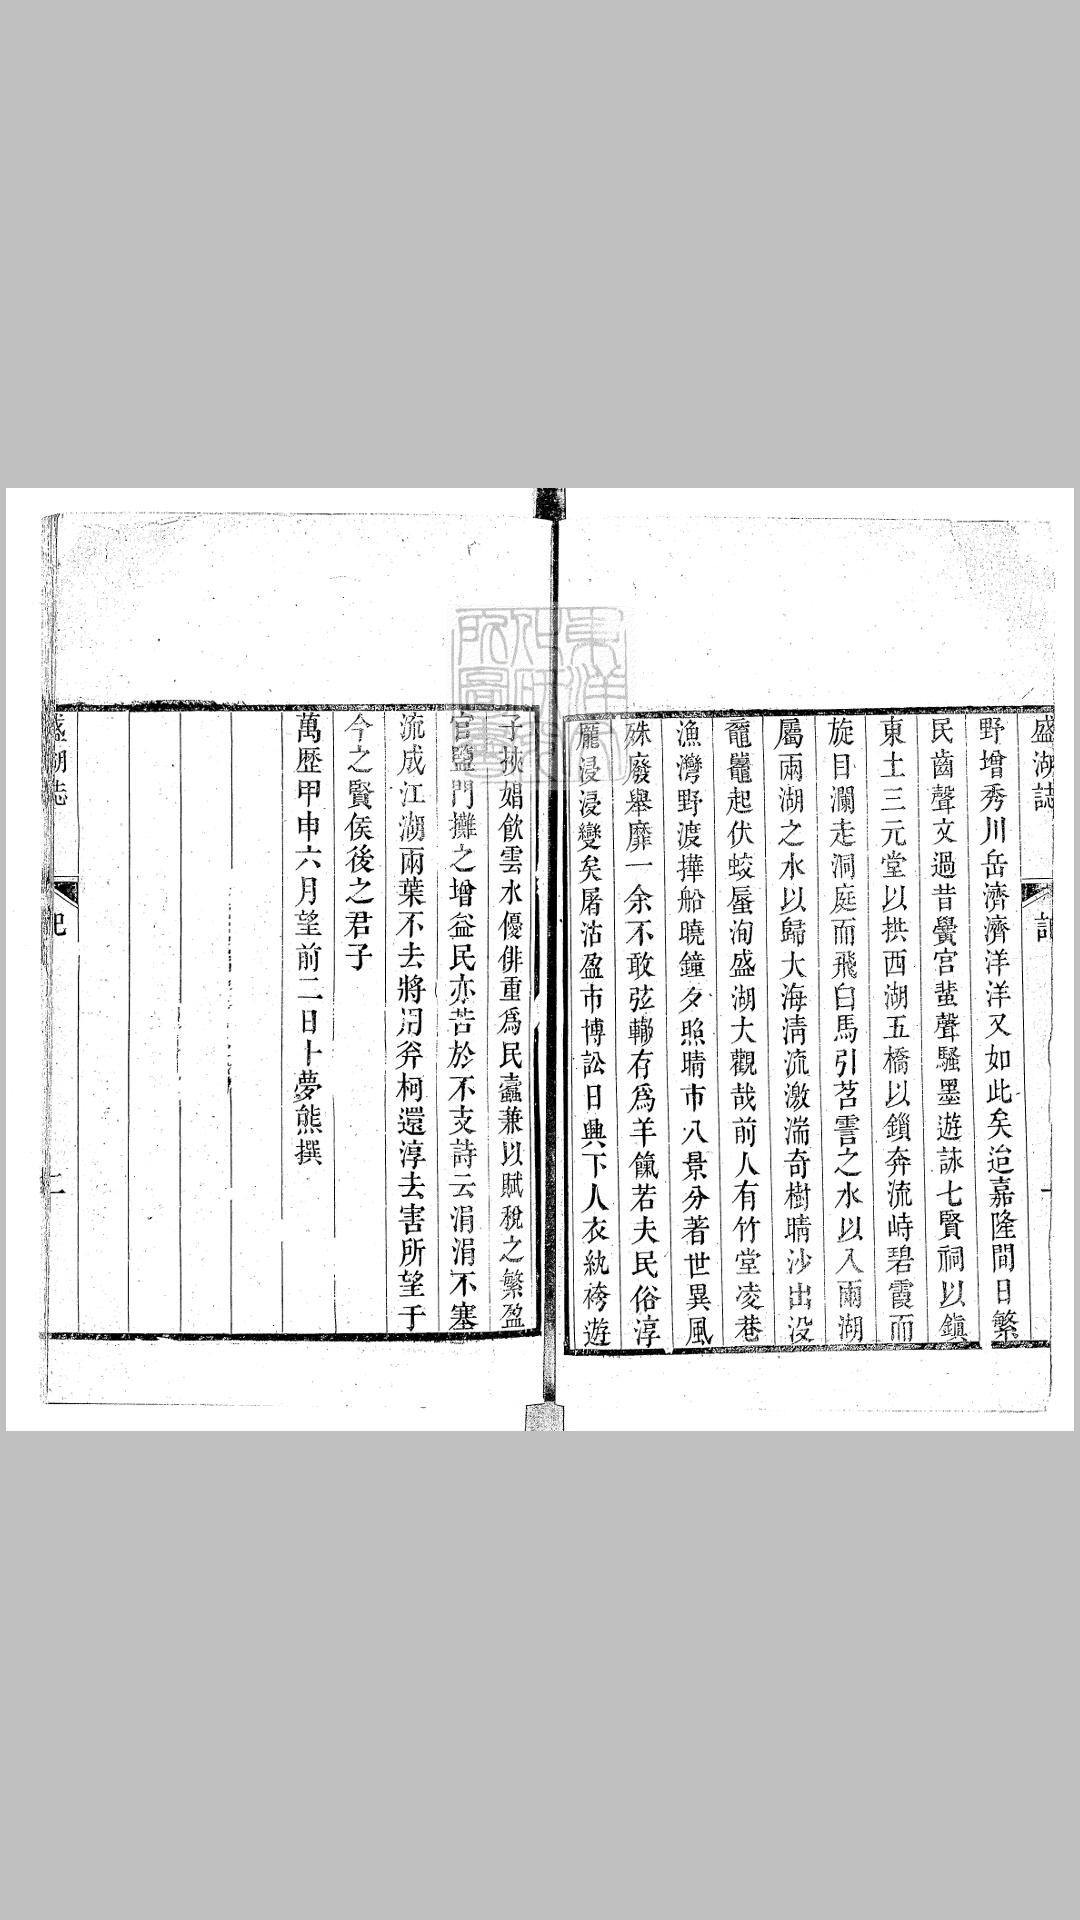 盛湖誌
記
一
野增秀川岳濟濟洋洋又如此矣迨嘉隆間日繁
民齒聲文過昔黌宮蜚聲騷墨遊詠七賢祠以鎭
東土三元堂以拱西湖五橋以鎖奔流峙碧霞而
旋目瀾走洞庭而飛白馬引苕霅之水以入兩湖
屬兩湖之水以歸大海淸流激湍奇樹晴沙出没
黿鼉起伏蛟蜃洵盛湖大觀哉前人有竹堂凌巷
漁灣野渡撶船曉鐘夕照晴市八景分著世異風
殊廢舉靡一余不敢弦轍存爲羊餼若夫民俗淳
龎浸浸變矣屠沽盈市博訟日興下人衣紈袴遊
子挾娼飮雲水優俳重爲民蠧兼以賦稅之繁盈
官鹽門攤之增益民亦苦於不支詩云涓涓不塞
流成江湖兩葉不去將用斧柯還淳去害所望于
今之賢侯後之君子
萬歷甲申六月望前二日卜夢熊撰
盛湖志
記
二